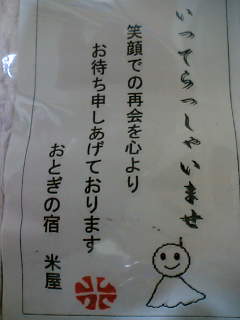 いってらっしゃいませ
笑顔での再会を心より
お待ち申しあげております
おとぎの宿　米屋